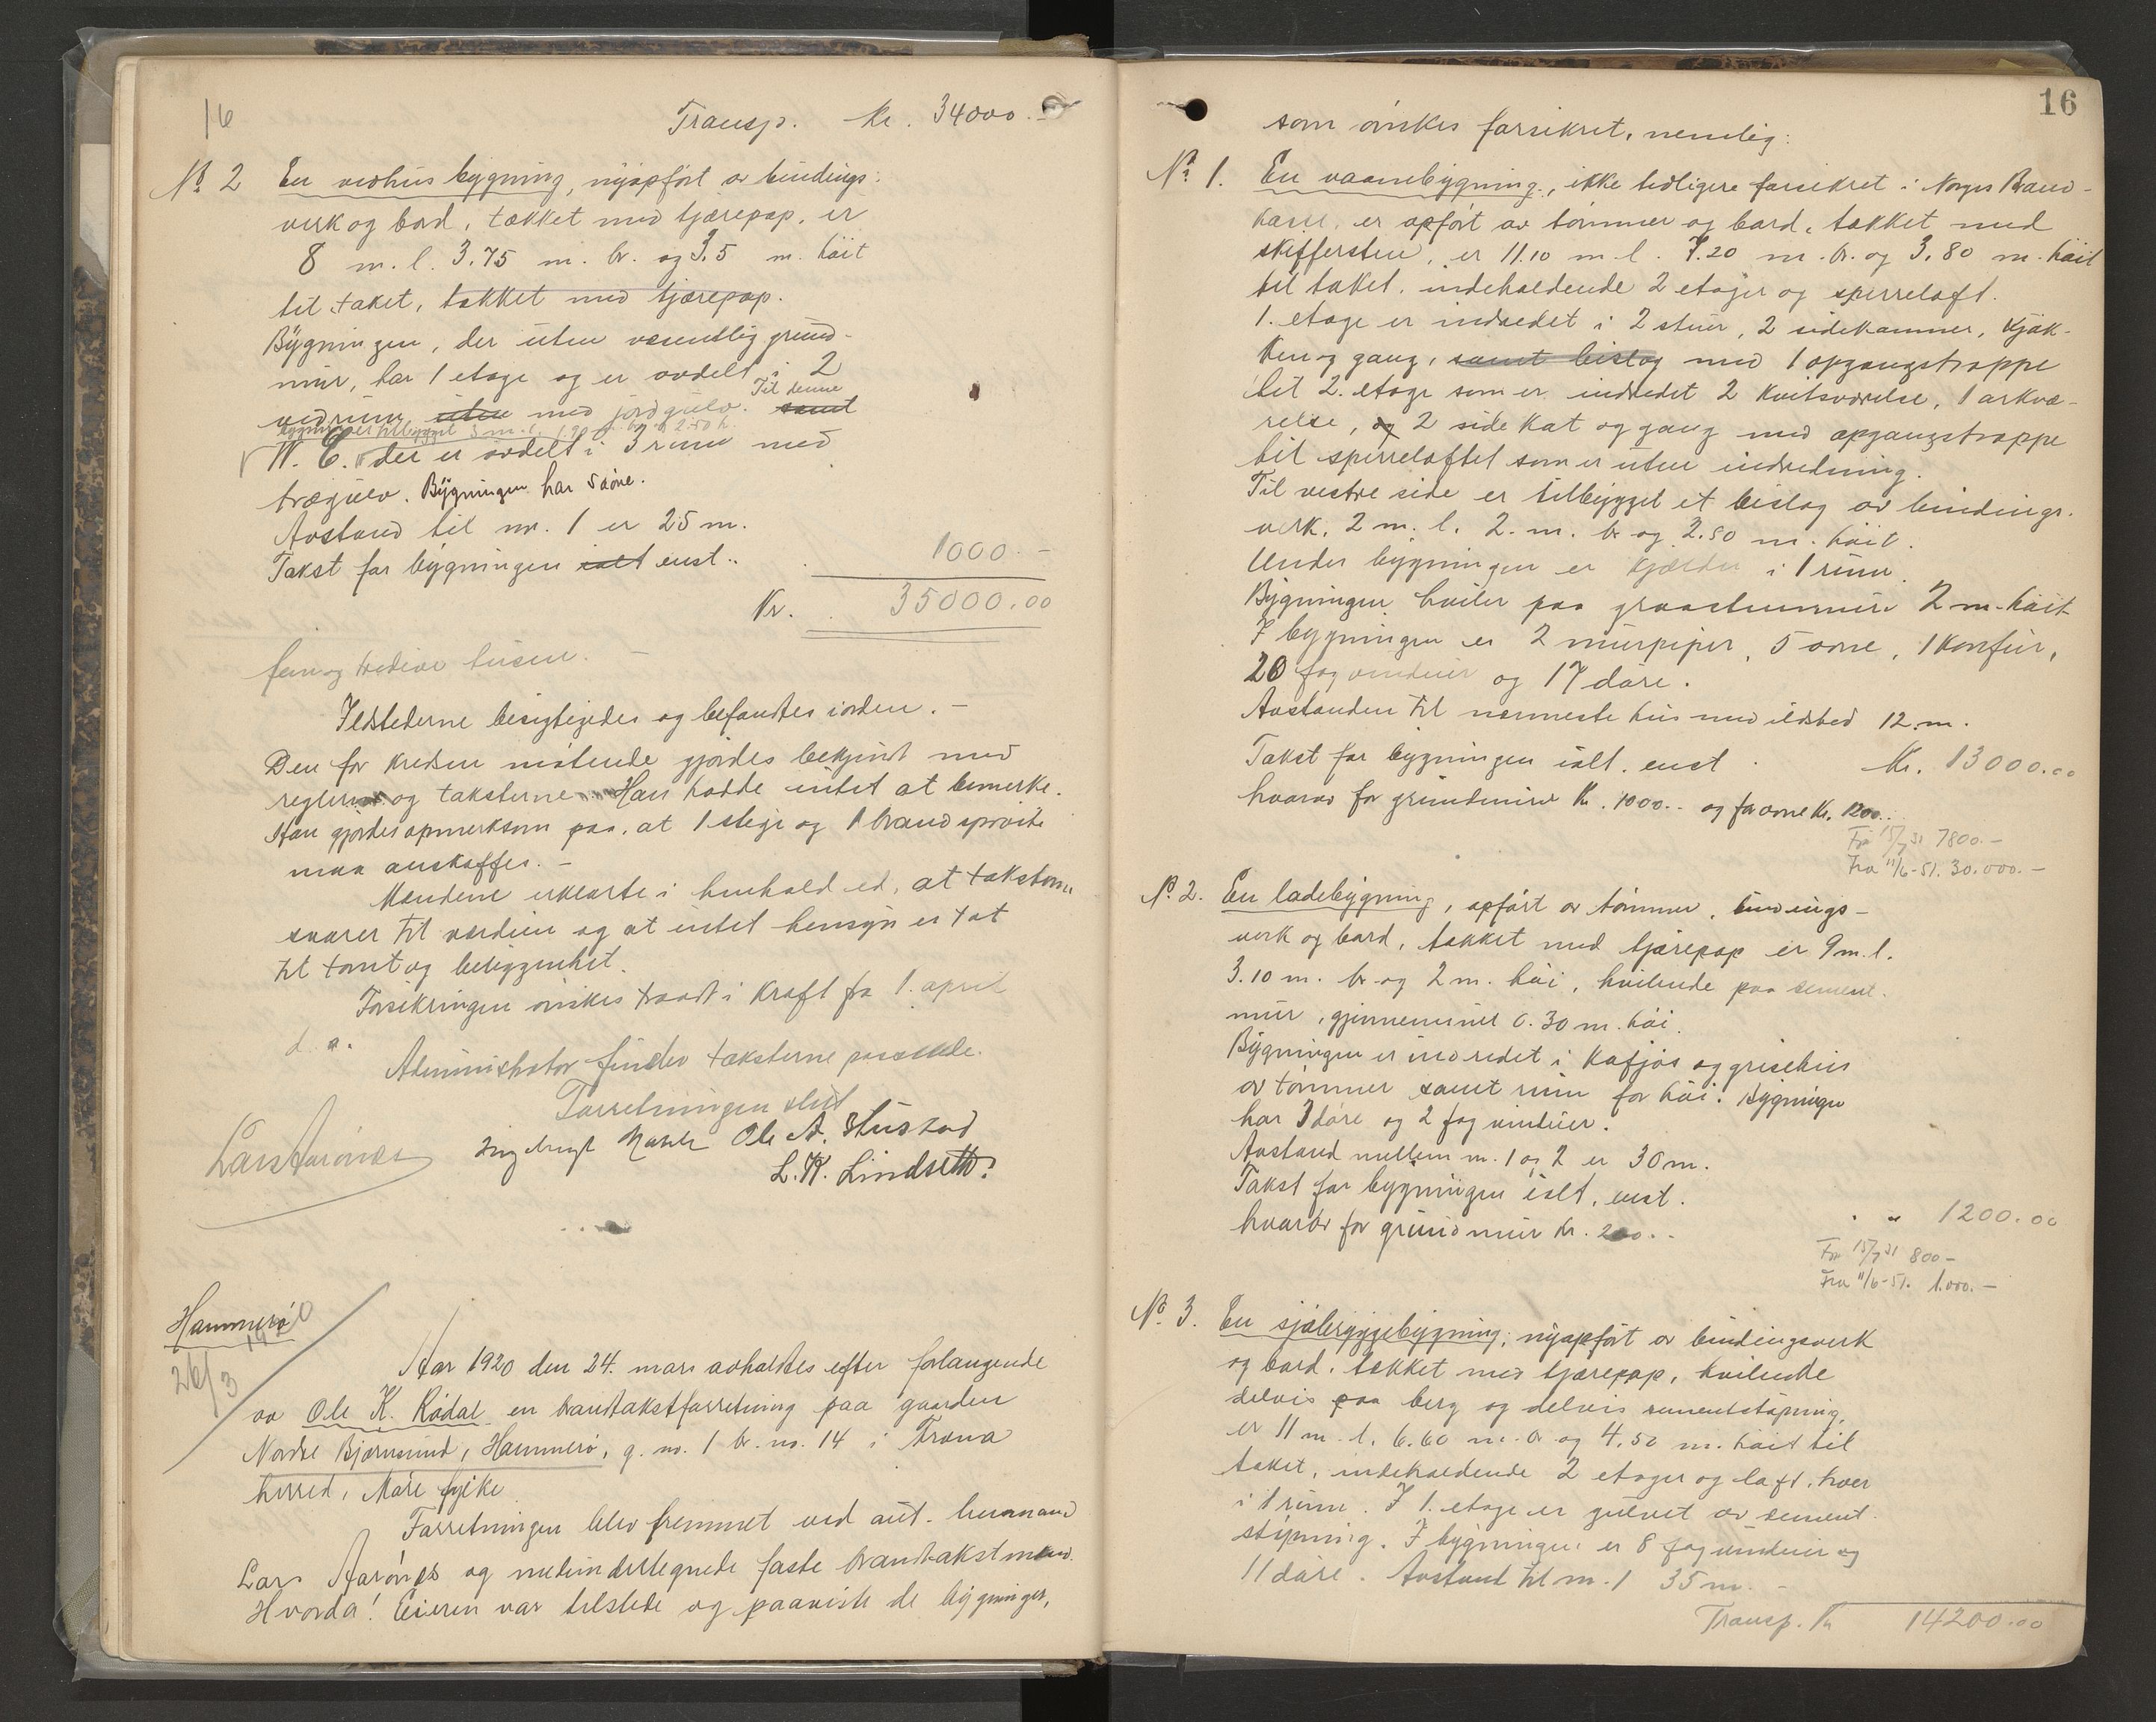 16
Transp. kr. 34000.-
No 2 En vedhus bygning, nyopført av bindings-
verk og bord, tækket med tjærepap, er
8 m. l. 3.75 m. br. og 3.5 m. høit
til taket, tækket med tjærepap.
Bygningen, der uten vesentlig grund-
mur, har 1 etage og er avdelt i 2
vedrum, uten med jordgulv. Til denne samt
bygning er tilbygget 5 m. l. 1.90 m. br. 2.50 h.
W. C. der er avdelt i 3 rum med
trægulv. Bygningen har 5 døre.
Avstand til nr. 1 er 25 m.
Takst for bygningen ialt enst.. 1000.-
Kr. 35000.00
fem og tredive tusen.-
Ildstederne besigtigedes og befandtes i orden.-
Den for kredsen møtende gjordes bekjendt med
reglerne og taksterne. Han hadde intet at bemerke.
Han gjordes opmerksom paa, at 1 stige og 1 brandsprøite
maa anskaffes.-
Mændene erklærte i henhold ed, at taksterne
svarer til værdien og at intet hensyn er tat
til tomt og beliggenhet.
Forsikringen ønskes traadt i kraft fra 1. april
d. a.
Administrator finder taksterne passende.
Forretningen slut
Lars Aarønes Ingebrigt Ole A. Hustad
L. K. Lindseth
Hammerø
1920
26/3
Aar 1920 den 24. mars avholdtes efter forlangende
av Ole K. Rødal en brandtakstforretning paa gaarden
Nordre Bjørnsund, Hammerø, g. no. 1 br. no. 14 i Fræna
herred, Møre fylke
Forretningen blev fremmet ved aut. lensmand
Lars Aarønes og medundertegnede faste brandtakstmænd.
Hvorda! Eieren var tilstede og paaviste de bygninger,
16
som ønskes forsikret, nemlig:
No 1. En vaanebygning, ikke tidligere forsikret i Norges Brand-
kasse, er opført av tømmer og bord, tækket med
skiffersten, er 11.10 m. l. 7.20 m. br. og 3.80 m. høit
til taket, indeholdende 2 etager og sperreloft.
1. etage er indredet i 2 stuer, 2 sidekammer, kjøk-
ken og gang, samt bislag med 1 opgangstrappe
til 2. etage som er indredet 2 kvistværelse, 1 arkvæ-
relse, og 2 side kot og gang med opgangstrappe
til sperreloftet som er uten indredning.
Til vestre side er tilbygget et bislag av bindings-
verk, 2 m. l. 2. m. br og 2.50 m. høit.
Under bygningen er kjælder i 1 rum.
Bygningen hviler paa graastensmur 2 m. høit
I bygningen er 2 murpiper, 5 ovne, 1 komfur,
20 fag vinduer og 17 døre.
Avstanden til nærmeste hus med ildsted 12 m.
Takst for bygningen ialt. enst. Kr. 13000.00
hvorav for grundmur Kr. 1000.- og for ovne Kr. 1200.-
Fra 15/7 31 7800.-
Fra 11/6-51. 30.000.-
No. 2. En ladebygning, opført av tømmer, bindings-
verk og bord, tækket med tjærepap er 9 m. l.
3.10 m. br og 2 m. høi, hvilende paa sement-
mur, gjennemsnit 0.30 m. høi.
Bygningen er indredet i kafjøs og grisehus
av tømmer samt rum for høi. Bygningen
har 3 døre og 2 fag vinduer.
Avstand mellem nr. 1 og 2 er 30 m.
Takst for bygningen ialt, enst. " " 1200.00
hvorav for grundmur kr. 200.-
Fra 15/7 31 800-
Fra 11/6-51. 1.000.-
No. 3. En sjøbryggebygning, nyopført av bindingsverk
og bord, tækket med tjærepap, hvilende
delvis paa berg og delvis sementstøpning,
er 11 m. l. 6.60 m. br og 4.50 m. høit til
taket, indeholdende 2 etager og loft, hver
i 1 rum. I 1. etage er gulvet av sement-
støpning. I bygningen er 8 fag vinduer og
11 døre. Avstand til nr. 1 35 m.-
Transp. Kr 14200.00